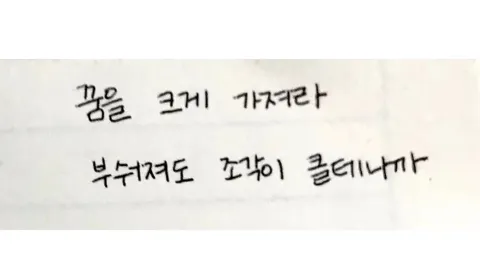 꿈을 크게 가져라
부숴져도 조각이 클테니까